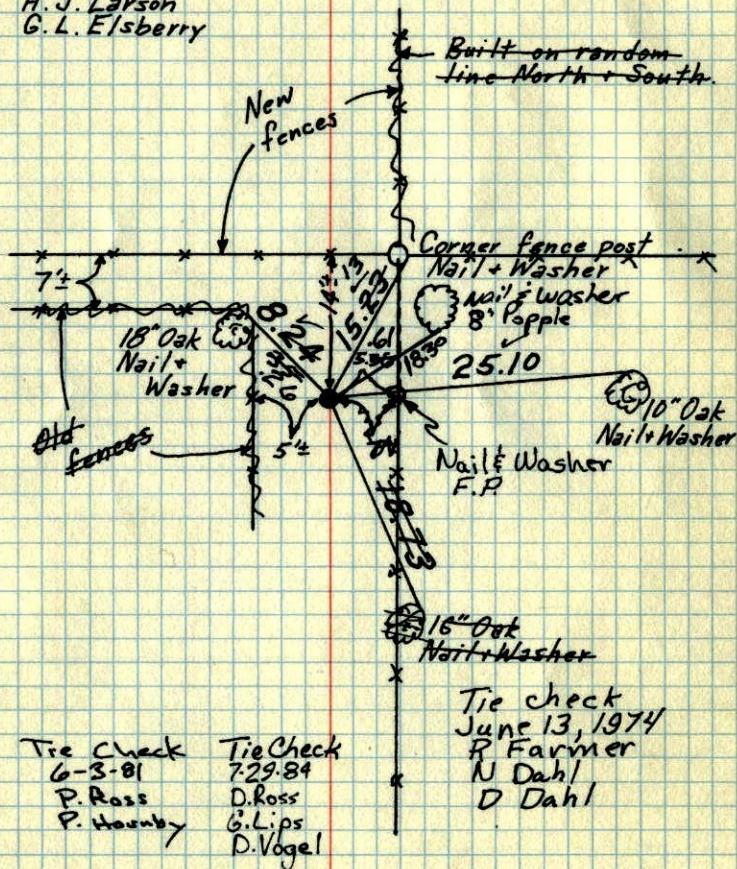 H. J. Larson
G. L. Elsberry
Built on random
line North & South.
New
fences
Corner fence post
Nail + Washer
7'±
14'±
15.23
.13
Nail & Washer
8" Popple
18.30
8.24
.61
5.35
25.10
18" Oak
Nail +
Washer
10" Oak
Nail + Washer
Old
fences
5'±
Nail & Washer
F.P.
18.73
16" Oak
Nail + Washer
Tie check
June 13, 1974
R Farmer
N Dahl
D Dahl
Tie Check
6-3-81
P. Ross
P. Hornby
Tie Check
7-29-84
D. Ross
G. Lips
D. Vogel